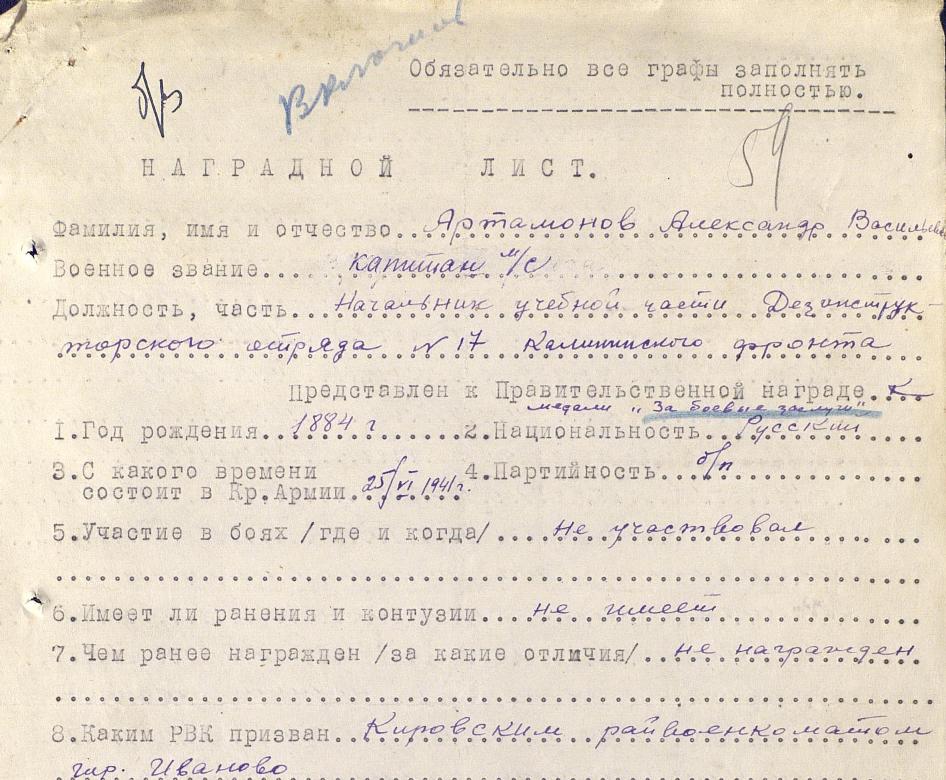 Включить
Обязательно все графы заполнять
полностью.
59
НАГРАДНОЙ ЛИСТ.
Фамилия, имя и отчество... Артамонов Александр Василье
Военное звание.... капитан м/с
Должность, часть... Начальник учебной части Дезинструк-
торского отряда N 17 Калининского фронта
Представлен к Правительственной награде. К
медали "За боевые заслуги"
1.Год рождения...1884 г 2.Национальность...Русский
3.С какого времени 4.Партийность... б/п
состоит в Кр.Армии...25/VI 1941г.
5.Участие в боях /где и когда/.... Не участвовал
6.Имеет ли ранения и контузии.... не имеет
7.Чем ранее награжден /за какие отличия/.. не награжден
8.Каким РВК призван...Кировским райвоенкоматом
гор. Иваново